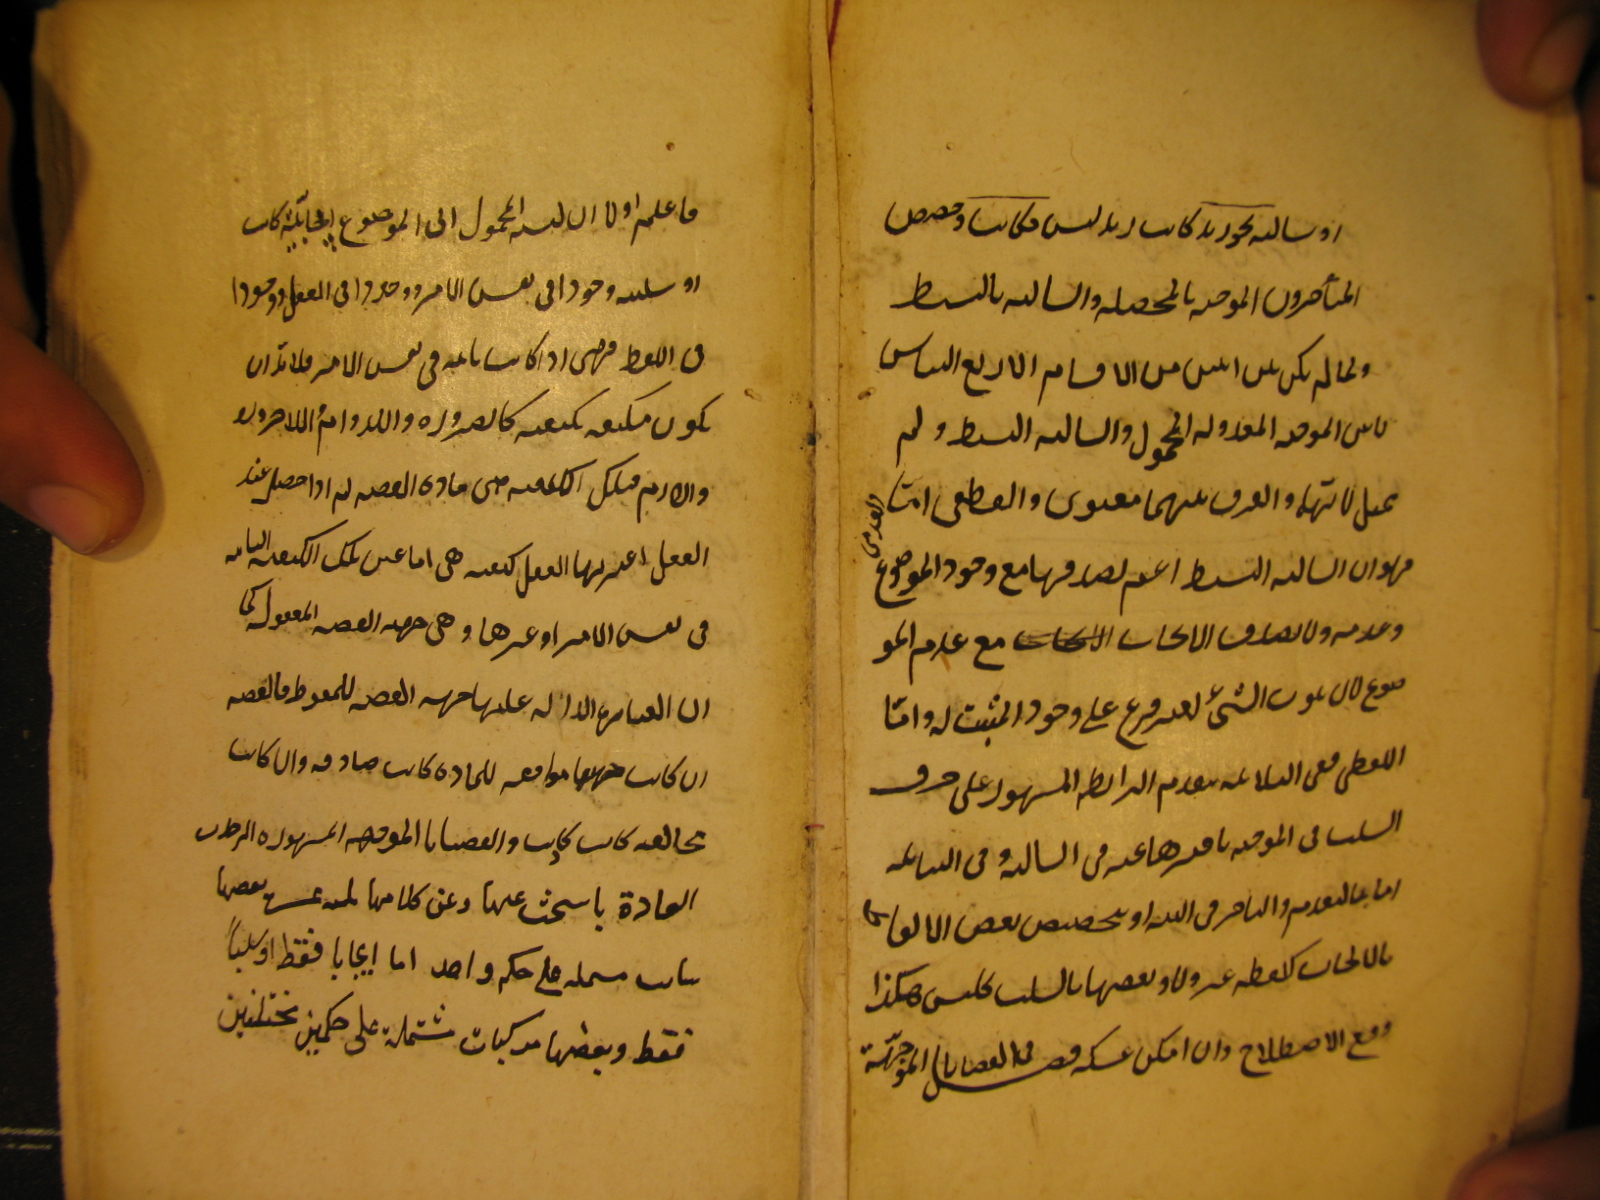 او سالبه نحو زيد كاتب زيد ليس بكاتب وخصص
المتأخرون الموجبه بالمحصله والسالبه بالبسيط
ولما لم يكن بين اثنين من الاقسام الاربع التباس
الا بين الموجبه المعدوله المحمول والسالبه البسيط ولم
والفرق بينهما معنوى ولفظى اما
المعنوى
فهو ان السالبه البسيط اعم لصدقها مع وجود الموضوع
وعدمه ولا يصدق الايجاب مع عدم المو
ضوع لان ثبوت الشئ لغيره فرع على وجود المثبت له واما
اللفظى ففى الثلاثيه بتقدم الرابطه المشهور على حرف
السلب فى الموجبه تاخرها عنه فى السالبه وفى الثنائيه
اما بالتقدم والتاخر فى النيه او بتخصيص بعض الالفاظ
بالايجاب كلفظه غير ولا وبعضها بالسلب كليس هكذا
وقع الاصطلاح وان امكن عكسه فصل فى القضايا الموجّهة
ما علم اولا ان لنسبه المحمول الى الموضوع ايجابيّة كانت
او سلبيه وجودا فى نفس الامر ووجودا فى العقل ووجودا
فى اللفظ فهى اذا كانت ثابته فى نفس الامر فلابدّ ان
تكون مكيفه بكيفيه كالضروره والدوام واللاضروره
واللادوام فتلك الكيفيه هى ماده القضيه ثم اذا حصل عند
العقل اعتبر بها العقل كيفيه هى اما عين تلك الكيفيه الثابته
فى نفس الامر او غيرها وهى جهه القضيه المعقوله كما
ان العباره الداله عليها جهه القضيه الملفوظه فالقضيه
ان كانت جهتها موافقه للماده كانت صادقه وان كانت
مخالفه كانت كاذبه والقضايا الموجهه المشهوره التى جرت
العادة بالبحث عنها وعن احكامها ثلثه عشر بعضها
بسائط مشتمله على حكم واحد اما ايجابا فقط او سلباً
فقط وبعضها مركبات مشتملة على حكمين مختلفين